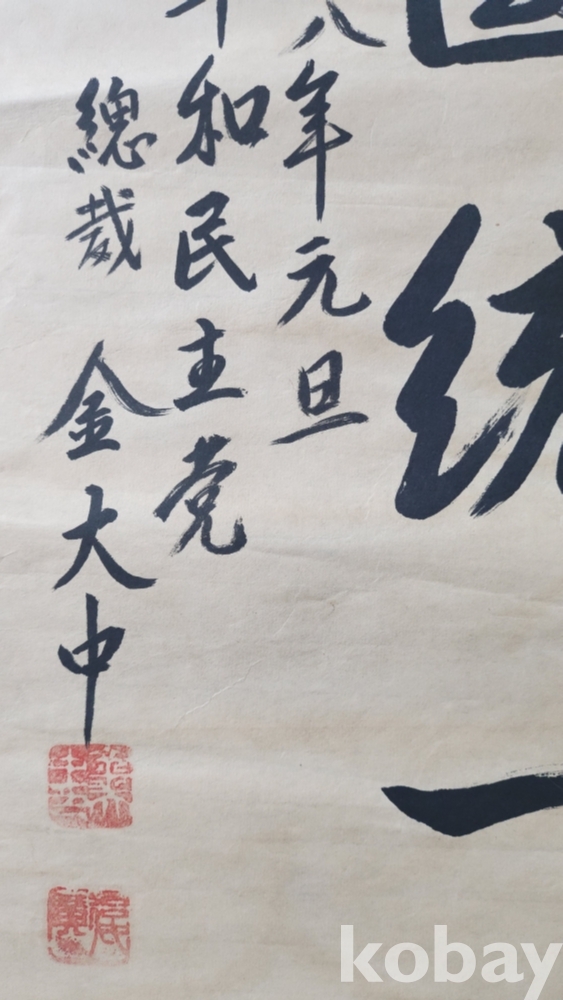 統一
八年元旦
平和民主党
總裁 金大中
kobay